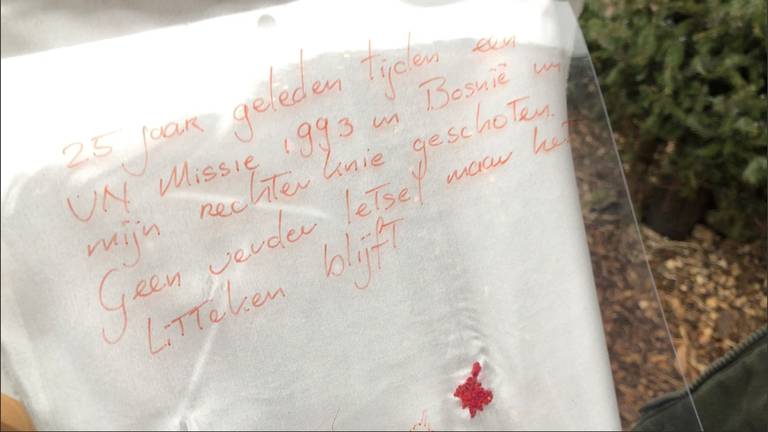 25 jaar geleden tijden een
UN Missie 1993 in Bosnië in
mijn rechter knie geschoten.
Geen verder letsel maar het
Litteken blijft